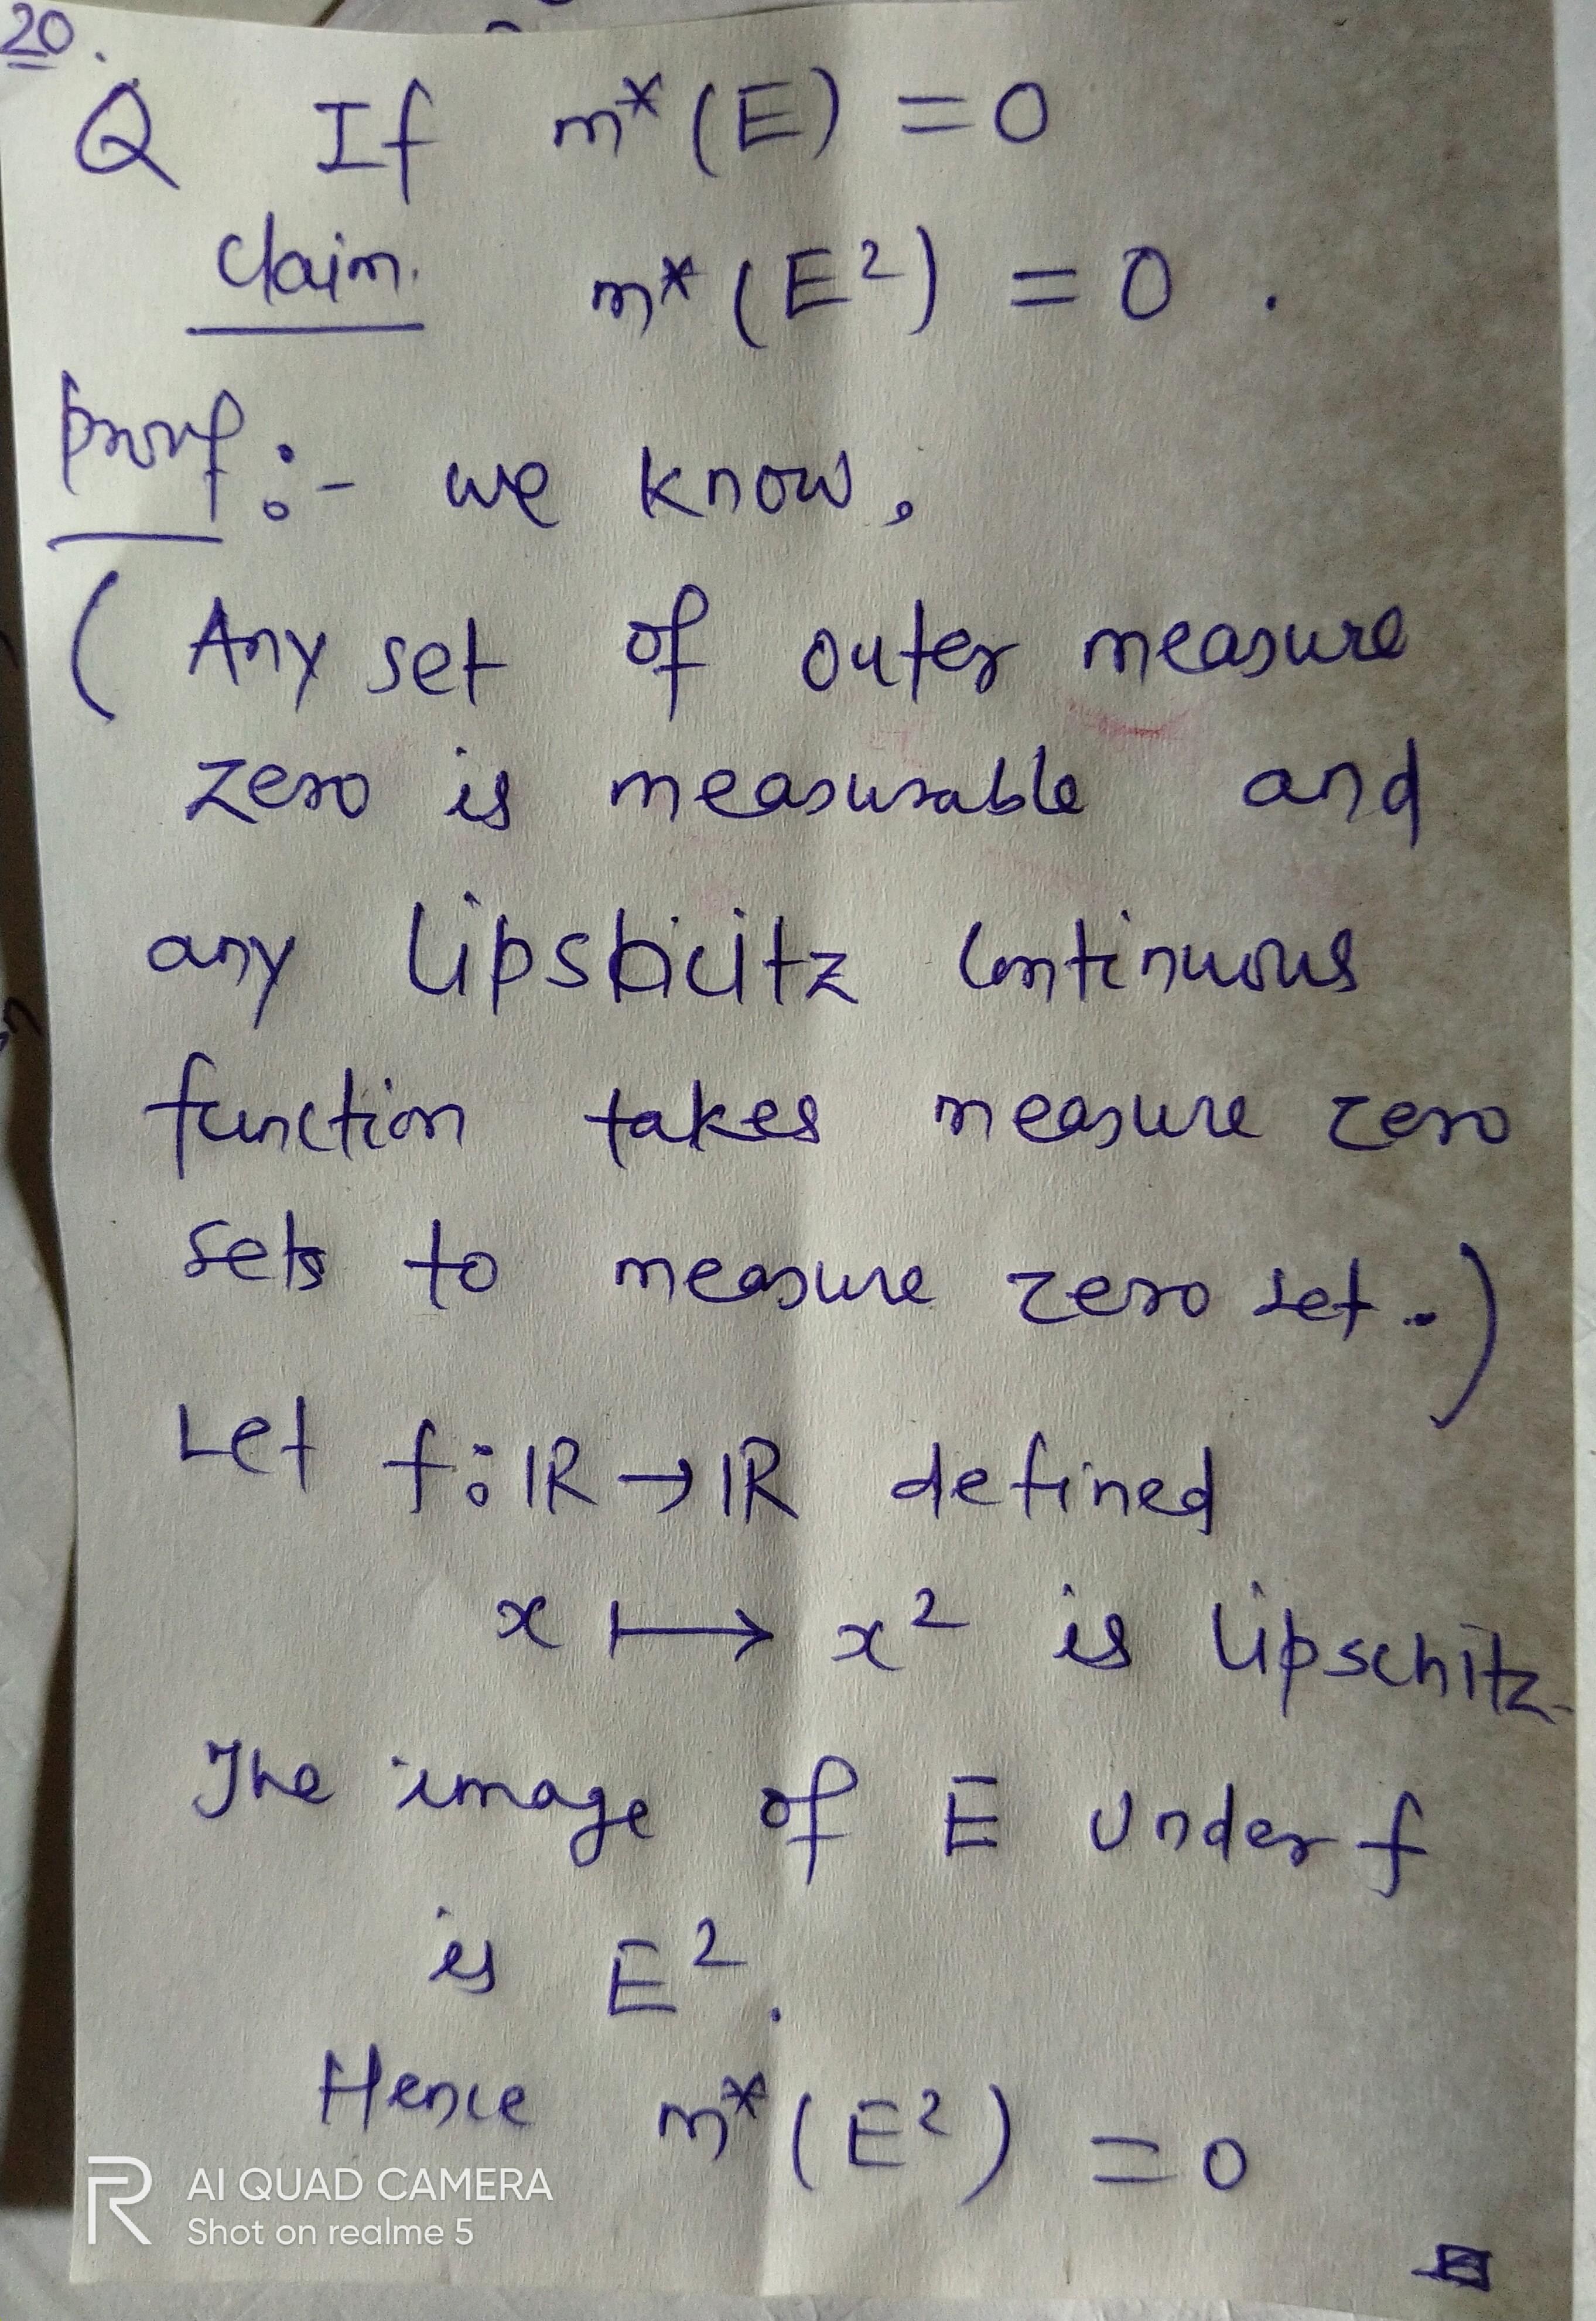 20.
Q If m*(E) = 0
Claim. m*(E²) = 0 .
Proof :- we know,
( Any set of outer measure
zero is measurable and
any Lipshcitz Continuous
function takes measure zero
sets to measure zero set.)
Let f: ℝ → ℝ defined
x ⟼ x² is Lipschitz
The image of E under f
is E².
Hence m*(E²) = 0
R AI QUAD CAMERA
Shot on realme 5